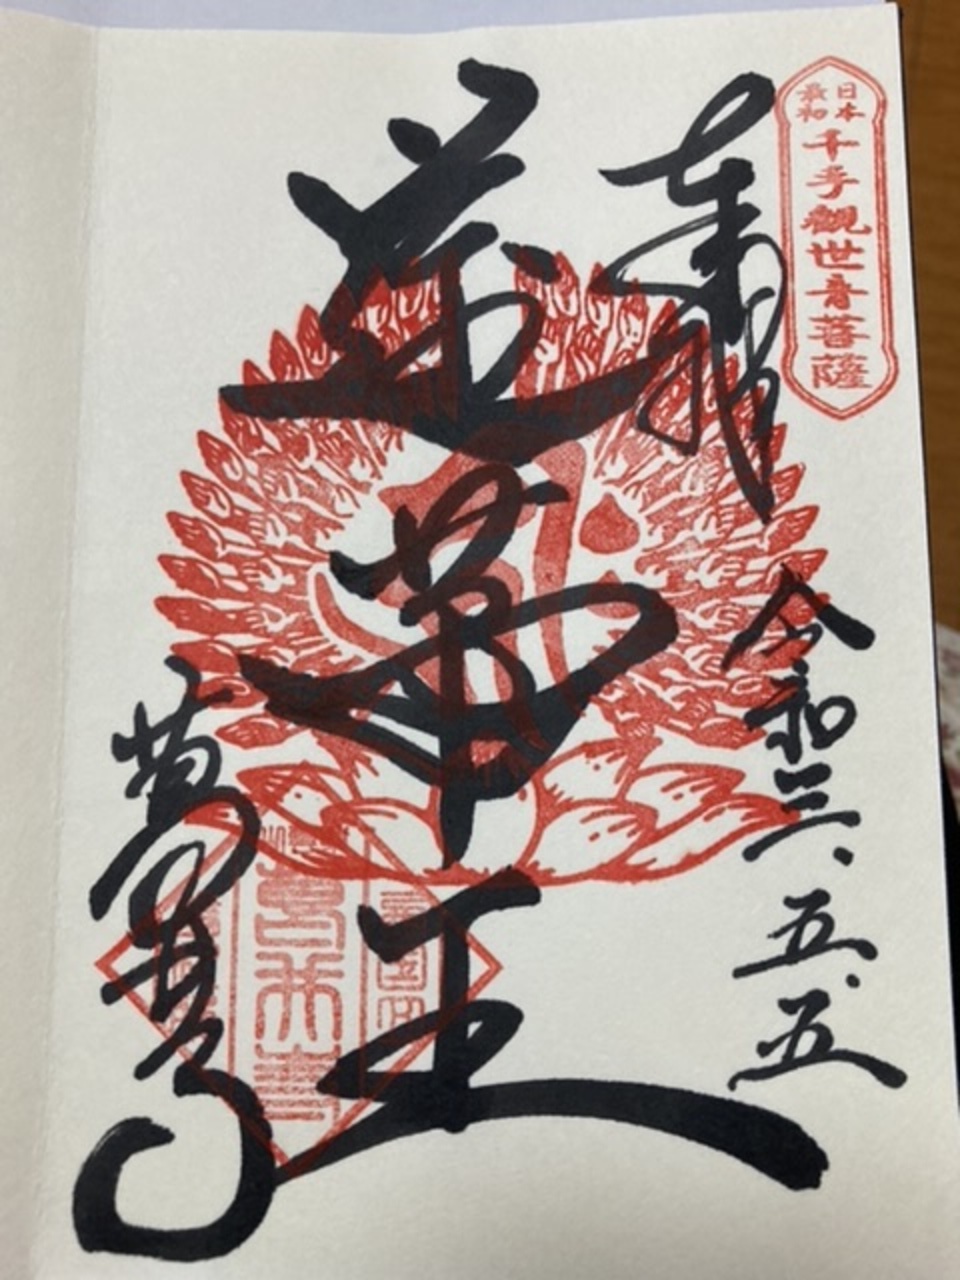 日本
最初
千手觀世音菩薩
奉拝
令和三.五.五
蓮華王
葛井寺